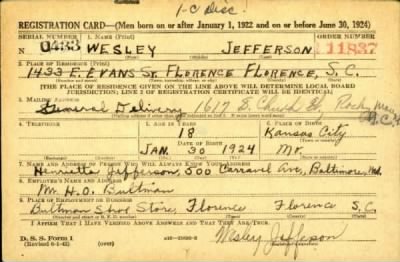 1-C Disc.
REGISTRATION CARD—(Men born on or after January 1, 1922 and on or before June 30, 1924)
SERIAL NUMBER 1. NAME (Print) ORDER NUMBER
N 0433 WESLEY JEFFERSON 11837
2. PLACE OF RESIDENCE (Print)
1433 E. EVANS St. FLORENCE FLORENCE, S.C.
[THE PLACE OF RESIDENCE GIVEN ON THE LINE ABOVE WILL DETERMINE LOCAL BOARD
JURISDICTION; LINE 2 OF REGISTRATION CERTIFICATE WILL BE IDENTICAL]
3. MAILING ADDRESS
General Delivery 1617 S. Church St Rocky N.C.
4. TELEPHONE 5. AGE IN YEARS 6. PLACE OF BIRTH
18 Kansas City
DATE OF BIRTH
JAN. 30 1924 Mo.
7. NAME AND ADDRESS OF PERSON WHO WILL ALWAYS KNOW YOUR ADDRESS
Henrietta Jefferson, 500 Ave, Baltimore, Md.
8. EMPLOYER'S NAME AND ADDRESS
M. H.O. Bultman
9. PLACE OF EMPLOYMENT OR BUSINESS
Bultman Shoe Store, Florence Florence S.C.
I AFFIRM THAT I HAVE VERIFIED ABOVE ANSWERS AND THAT THEY ARE TRUE.
D. S. S. Form 1
(Revised 6-1-42)
Wesley Jefferson